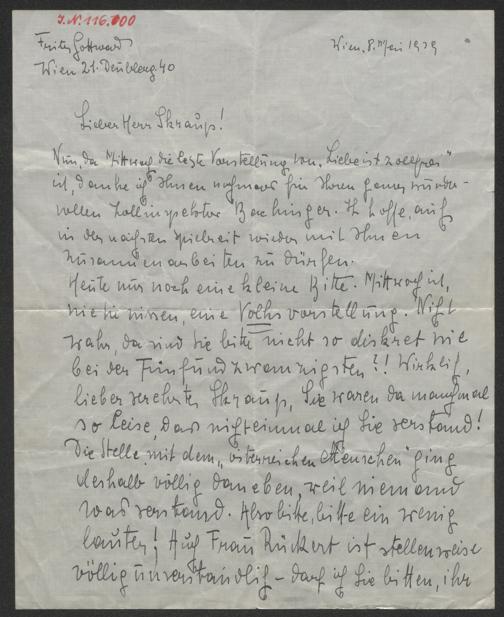 I.N. 116.700
Fritz Gottwald
Wien 21. Deublerg. 40
Wien, 8. Mai 1939
Lieber Herr Skraup!
Nun, da Mittwoch die letzte Vorstellung von „Liebe ist zollfrei"
ist, danke ich Ihnen nochmals für Ihren ganz wunder-
vollen Zollinspektor Bachinger. Ich hoffe, auch
in der nächsten Spielzeit wieder mit Ihnen
zusammenarbeiten zu dürfen.
Heute nur noch eine kleine Bitte. Mittwoch ist,
wie Sie wissen, eine Volksvorstellung. Nicht
wahr, da sind Sie bitte nicht so diskret wie
bei der Fünfundzwanzigsten?! Wirklich,
lieber verehrter Skraup, Sie waren da manchmal
so leise, dass nicht einmal ich Sie verstand!
Die Stelle mit dem „österreichen Menschen" ging
deshalb völlig daneben, weil niemand
was verstand. Also bitte, bitte ein wenig
lauter! Auch Frau Rückert ist stellenweise
völlig unverständlich – darf ich Sie bitten, ihr